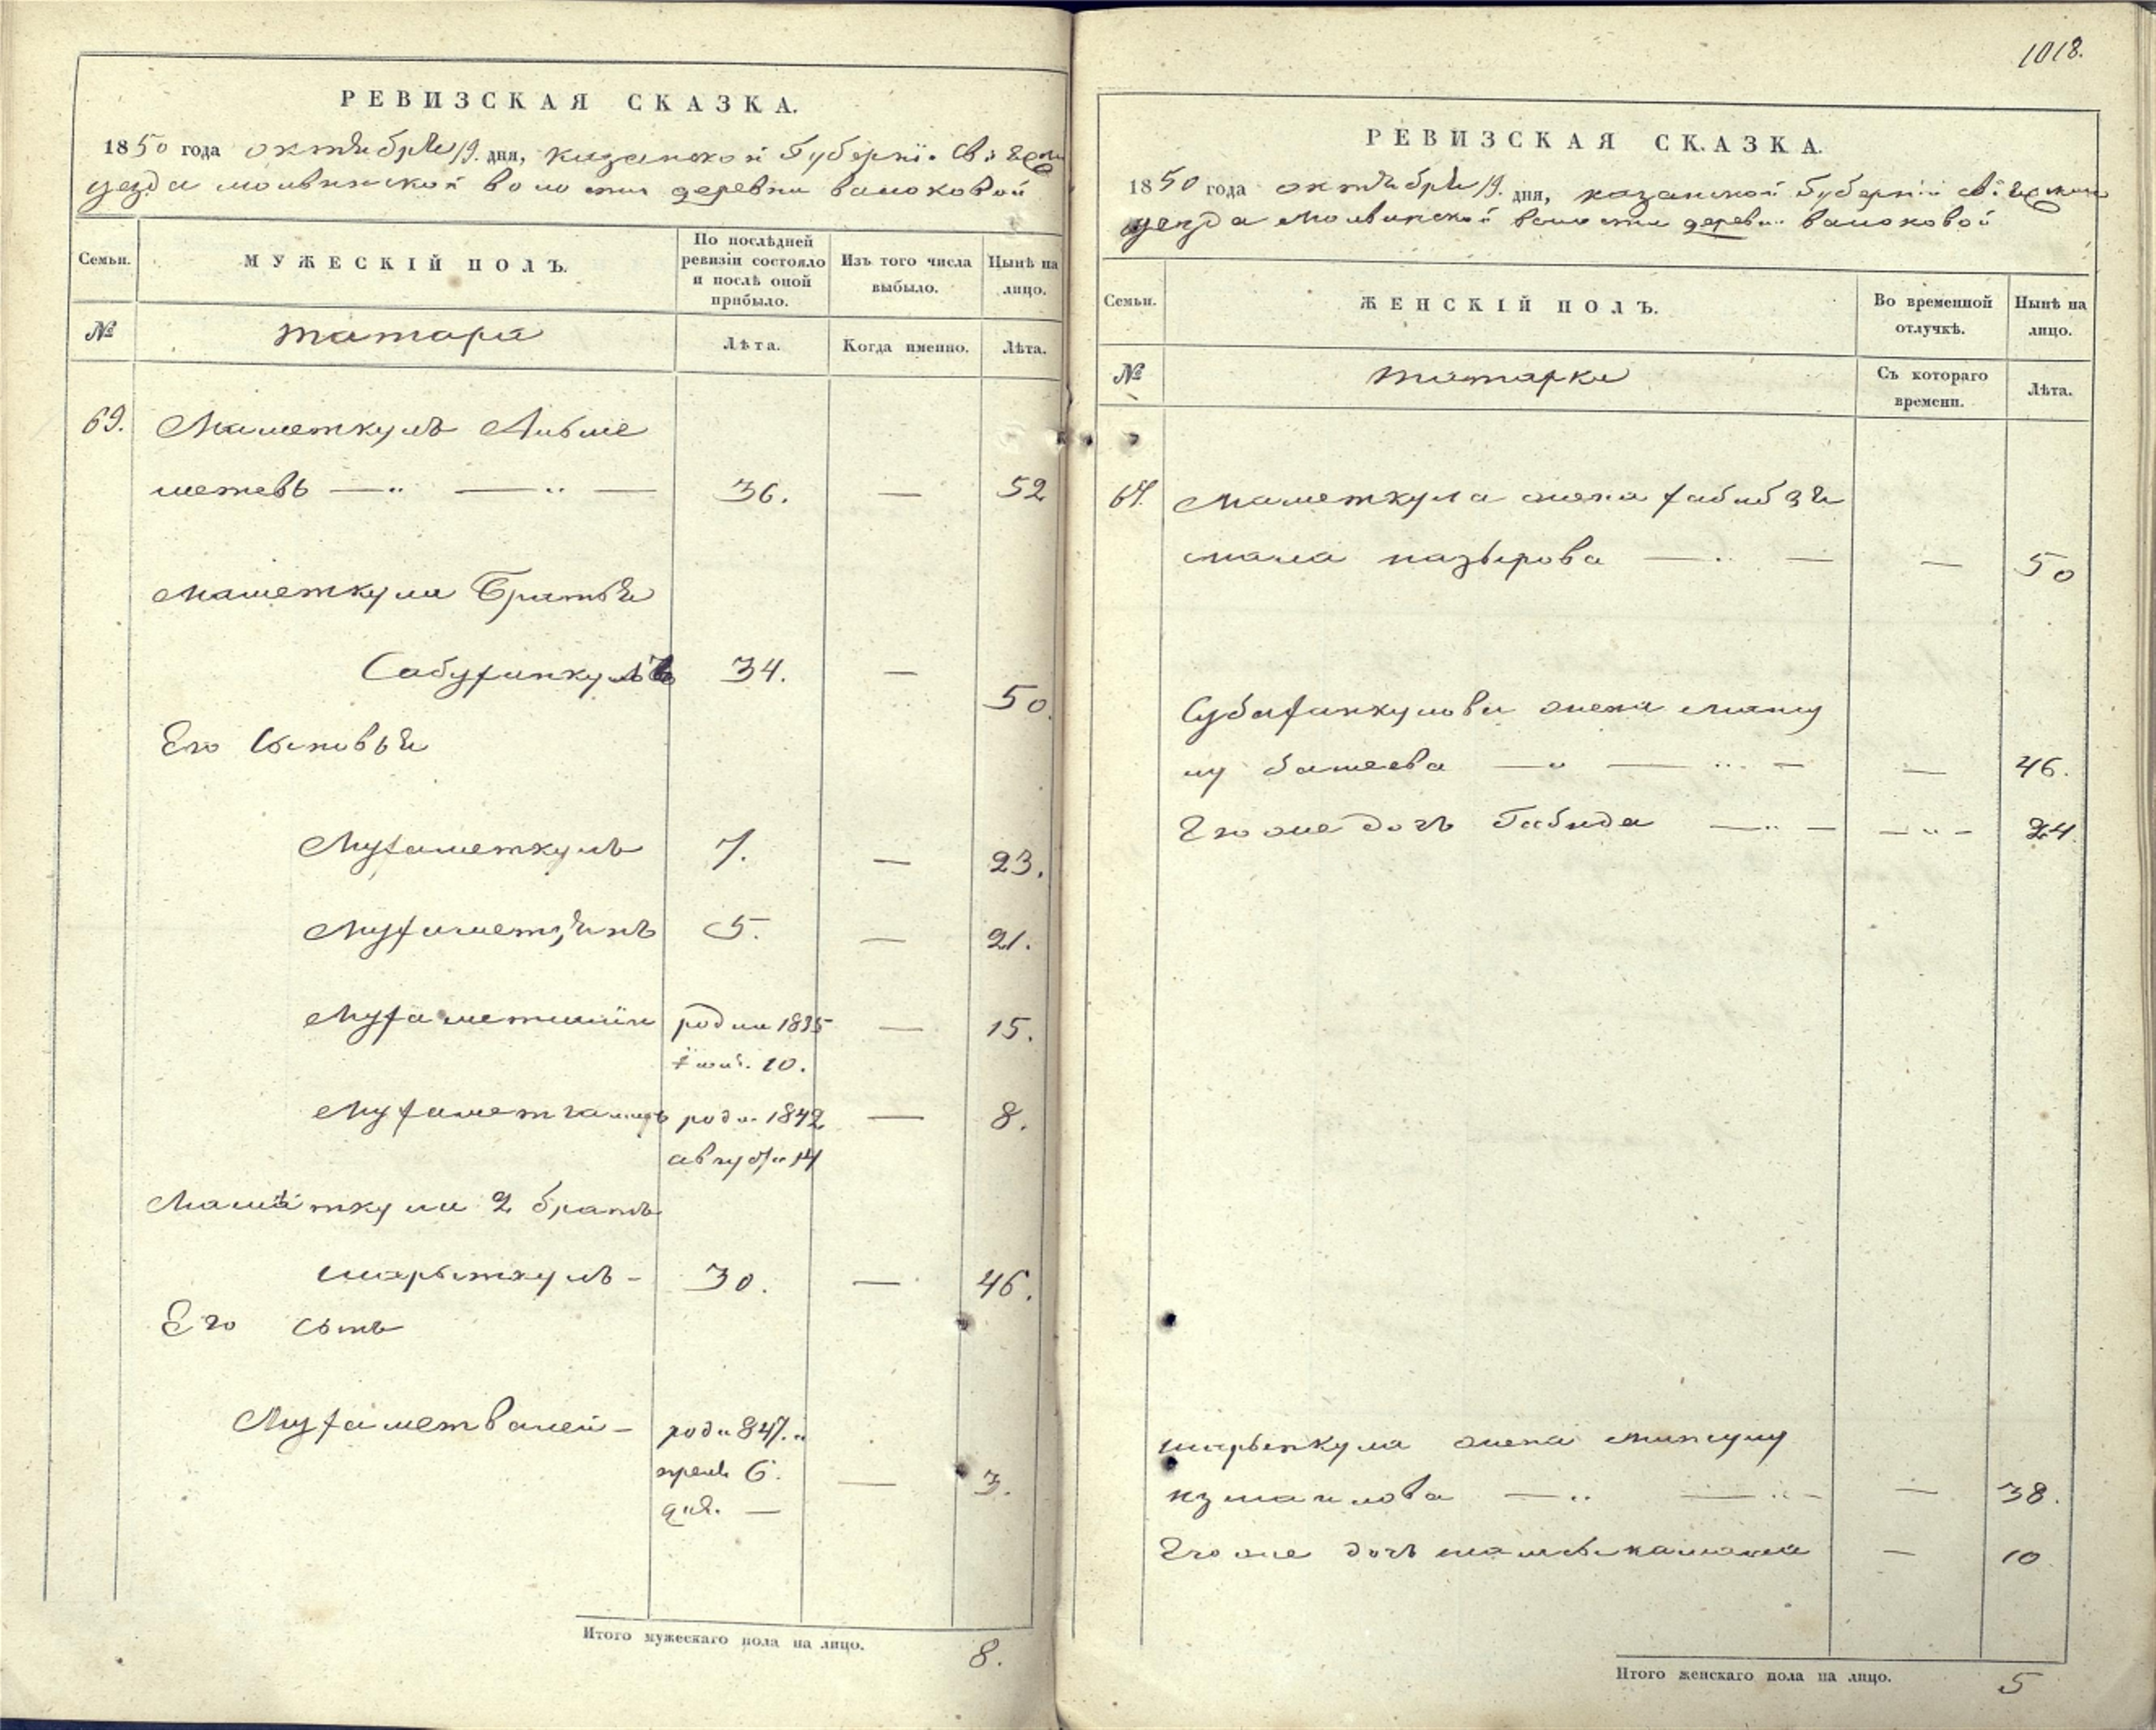 РЕВИЗСКАЯ СКАЗКА.
1850 года октября 19. дня, казанской губернiи свiяжс
уезда молвинской волости деревни валоковой
Семьи.
МУЖЕСКІЙ ПОЛЪ.
По послѣдней ревизіи состояло и послѣ оной прибыло.
Изъ того числа выбыло.
Нынѣ на лицо.
№
татара
Лѣта.
Когда именно.
Лѣта.
69. Маметкулъ
метевъ — 36. — 52
Маметкула братья
34. — 50.
Его Сыновья
Мухаметкулъ 7. — 23.
5. — 21.
роди 1835 — 15.
10.
роди 1842 — 8.
августа 14
Маметкула 2 братъ
шарыпкулъ - 30. — 46.
Его сынъ
Мухаметвалей - роди 847.
6. — 3.
дня. —
Итого мужескаго пола на лицо. 8.
1018.
РЕВИЗСКАЯ СКАЗКА.
1850 года октября 19. дня, казанской губернiи свiяжски
уезда молвинской волости деревни валоковой
Семьи.
ЖЕНСКІЙ ПОЛЪ.
Во временной отлучкѣ.
Нынѣ на лицо.
№
татарки
Съ котораго времени.
Лѣта.
Маметкула жена хабибзя
мала назырова — — — 50
жена
батеева — — — 46.
Его же дочь Габида — — 24.
шарыпкула жена
измаилова — — — 38.
Его же дочь — 10
Итого женскаго пола на лицо. 5